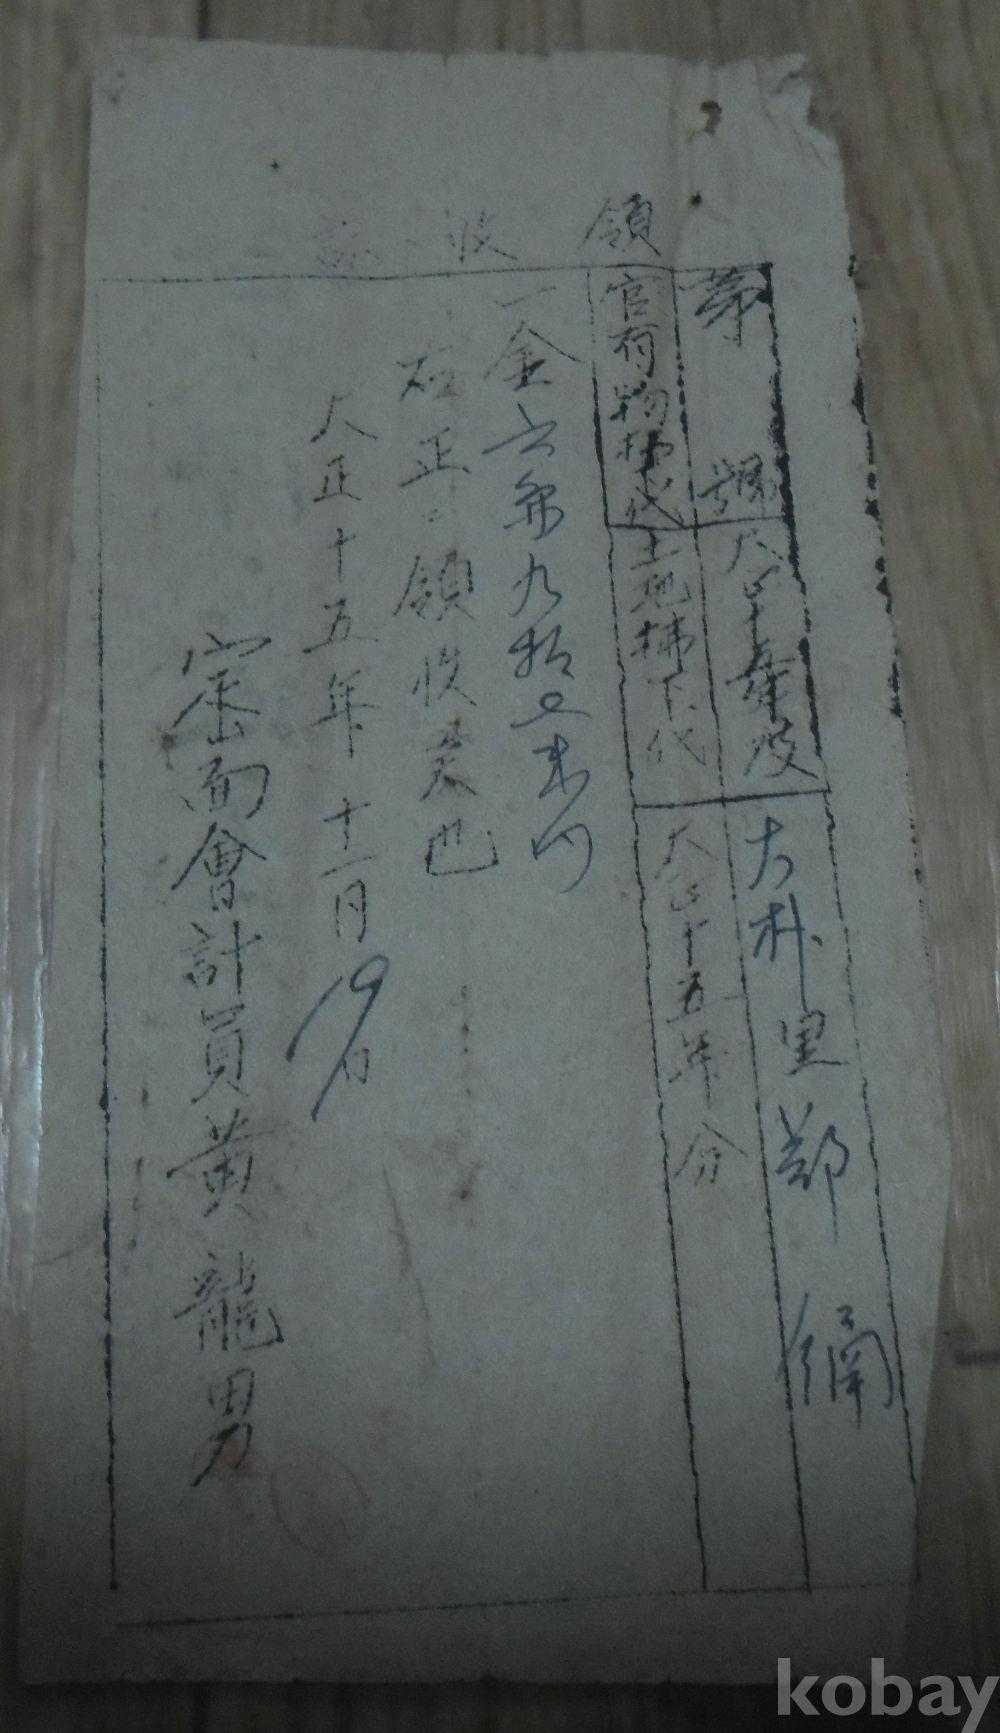 領收証
第 號
大正十五年度
大朴里 鄭
官有物拂代
土地拂下代
大正十五年分
一金六円九拾五戋
右正ニ領收候也
大正十五年十一月19日
面會計員黃龍男
kobay